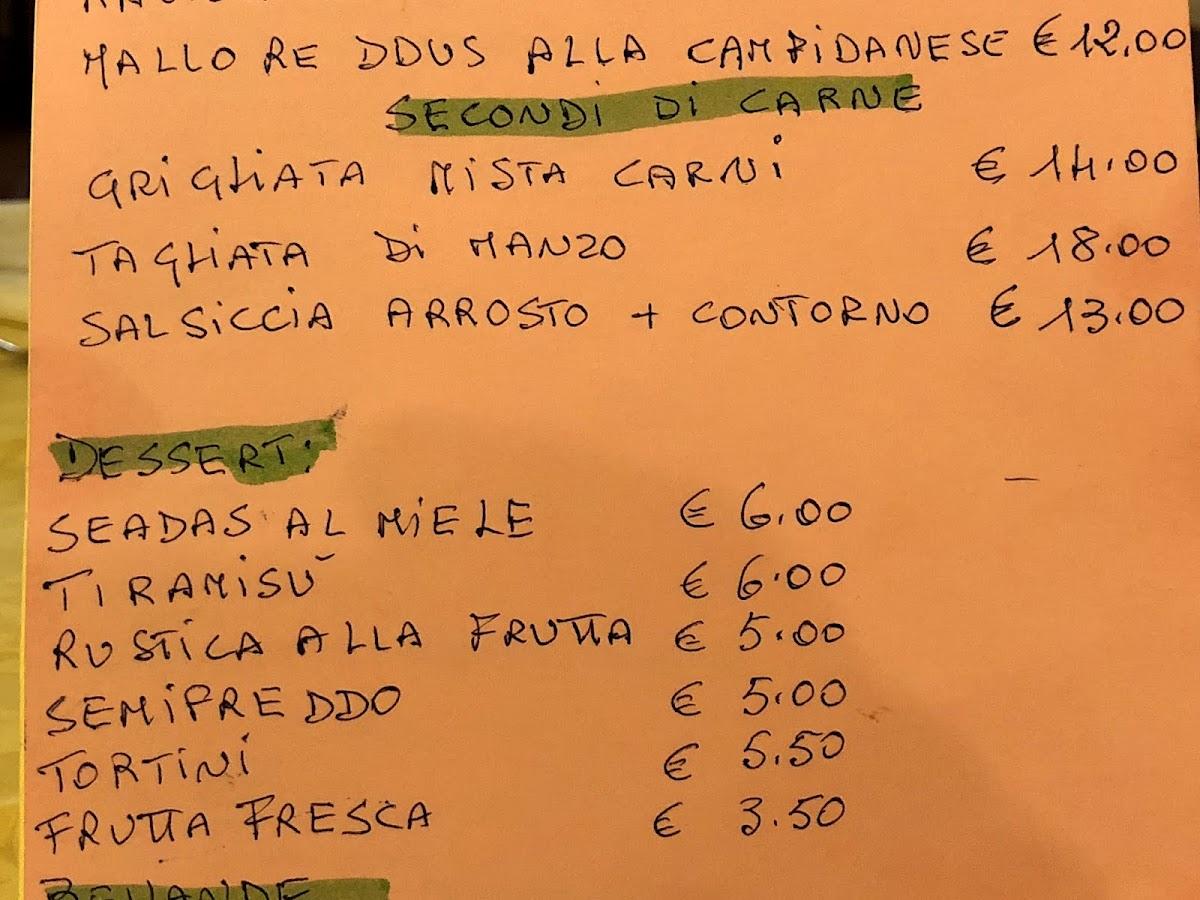 MALLOREDDUS ALLA CAMPIDANESE € 12,00
SECONDI DI CARNE
GRIGLIATA MISTA CARNI € 14.00
TAGLIATA DI MANZO € 18.00
SALSICCIA ARROSTO + CONTORNO € 13.00
DESSERT:
SEADAS AL MIELE € 6.00
TIRAMISÙ € 6.00
RUSTICA ALLA FRUTTA € 5.00
SEMIFREDDO € 5.00
TORTINI € 5.50
FRUTTA FRESCA € 3.50
BEVANDE